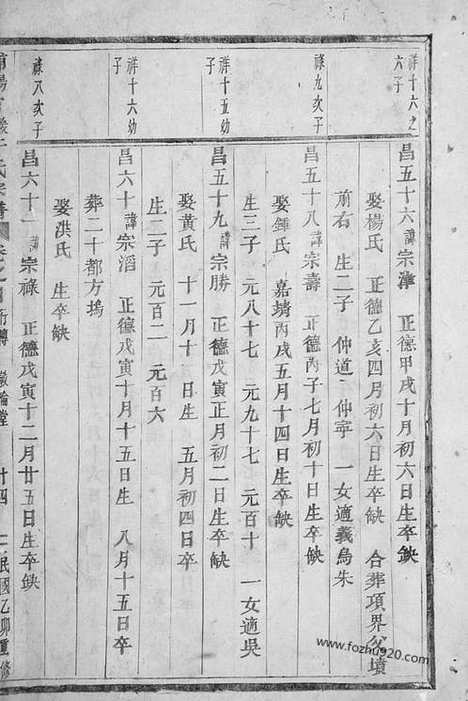 祥十六之
六子
昌五十六諱宗津 正德甲戌十月初六日生卒缺
娶楊氏 正德乙亥四月初六日生卒缺 合葬項界公墳
前右 生二子 仲道 仲寧 一女適義烏朱
祿九次子
昌五十八諱宗壽 正德丙子七月初十日生卒缺
娶鍾氏 嘉靖丙戌五月十四日生卒缺
生三子 元八十七 元九十七 元百十 一女適吳
祥十五幼
子
昌五十九諱宗勝 正德戊寅正月初二日生卒缺
娶黃氏 十一月十一日生 五月初四日卒
生二子 元百二 元百六
祥十六幼
子
昌六十諱宗滔 正德戊寅十月十五日生 八月十五日卒
葬二十都方塢
娶洪氏 生卒缺
祿八次子
昌六十一諱宗祿 正德戊寅十二月廿五日生卒缺
氏宗譜 行傳 敦倫堂 十四 民國乙卯重修
www.fozhu920.com